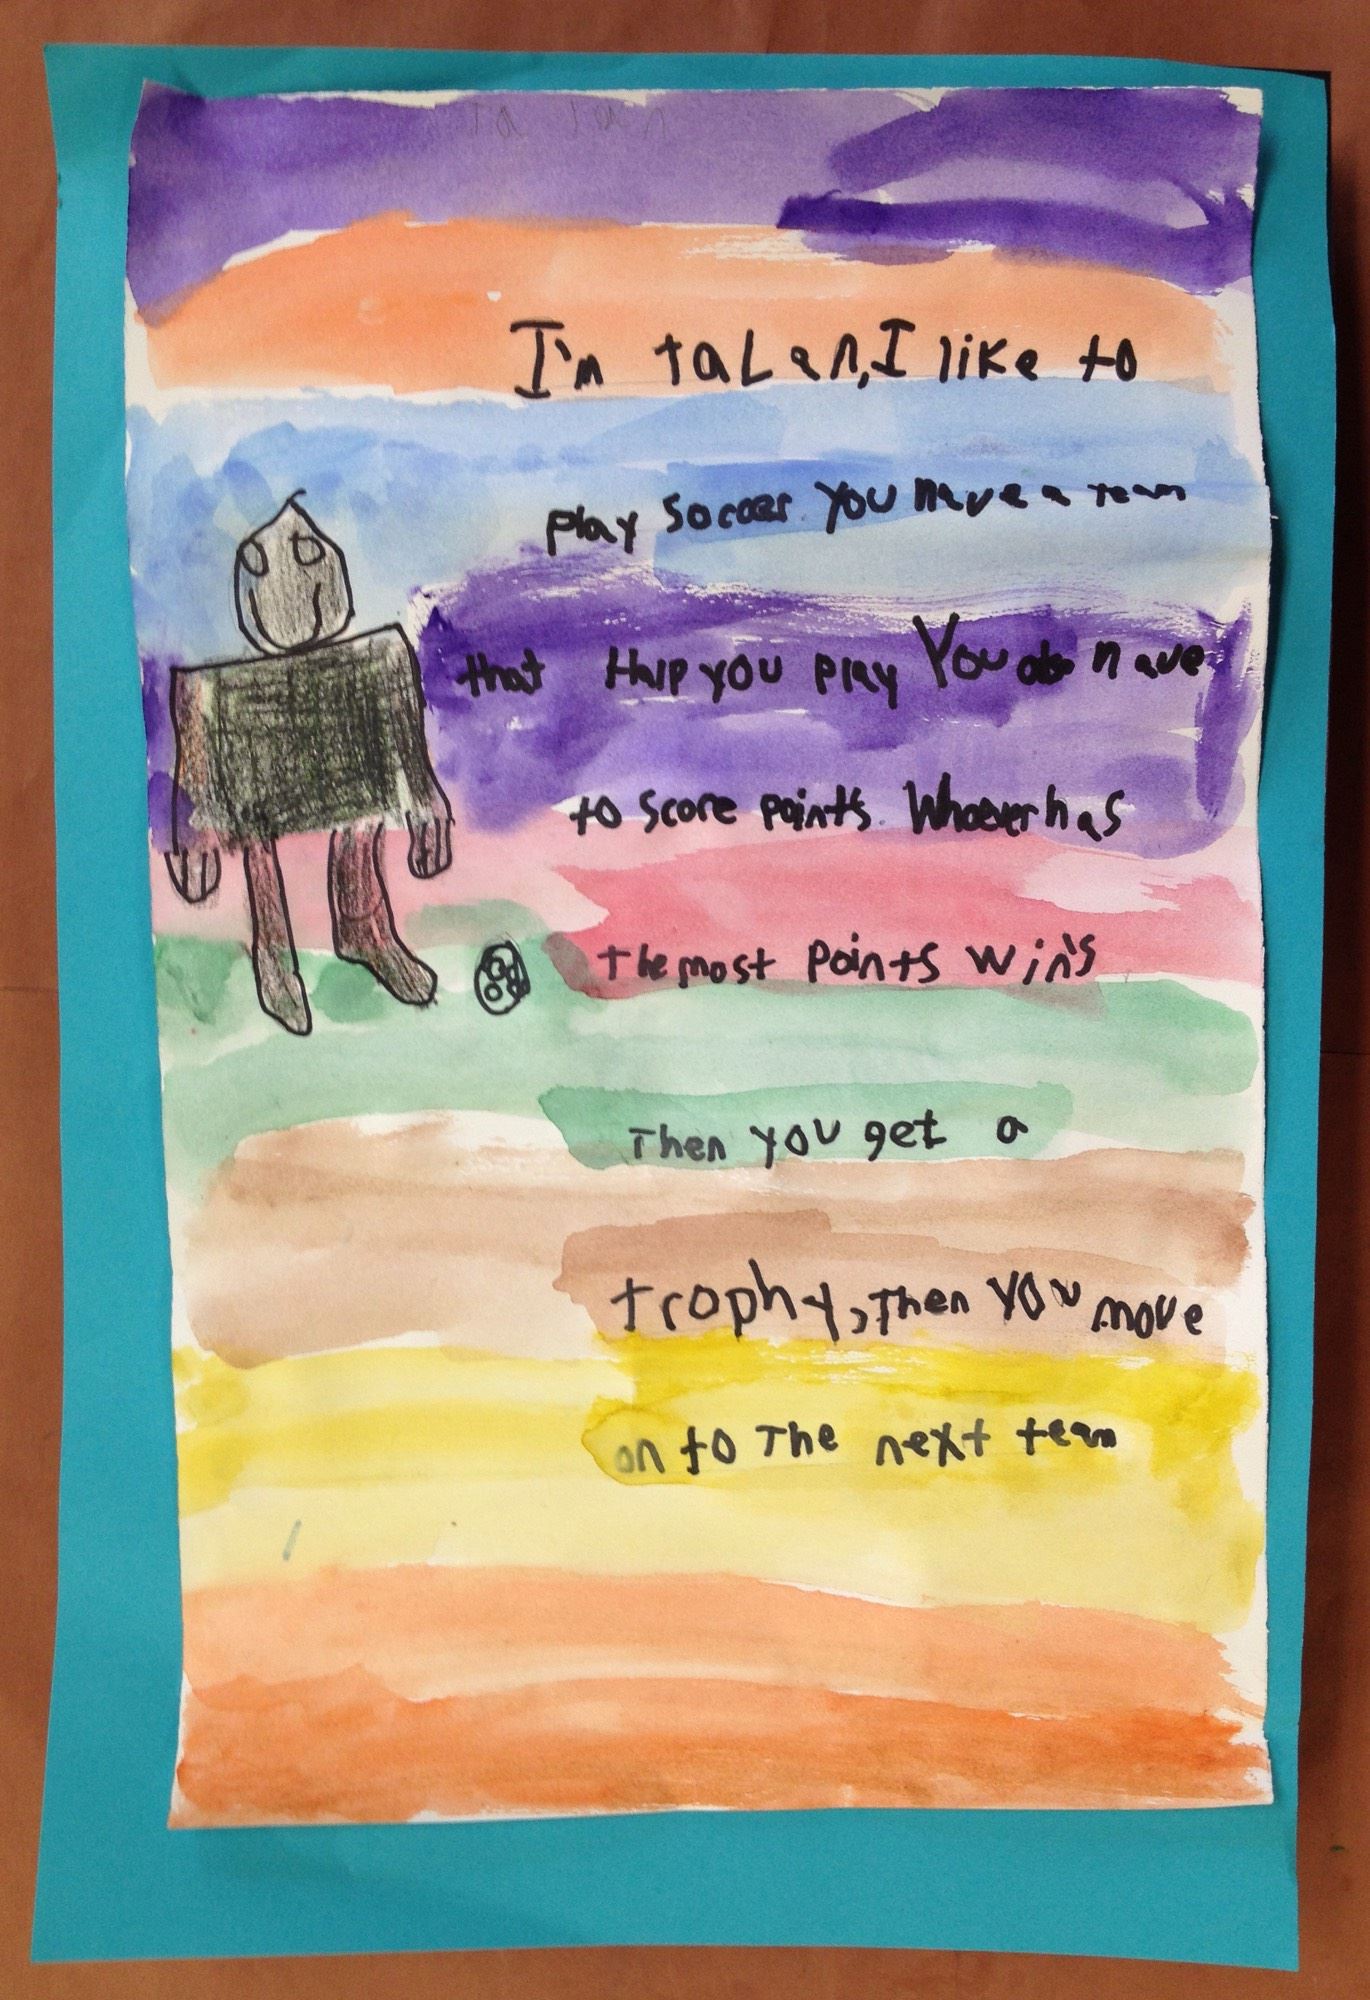 Talan
I'm taLan, I like to
play Soccer. You have a team
that Help you play You do have
to score points. Whoever has
the most points win's
Then you get a
trophy, Then you move
on to The next team